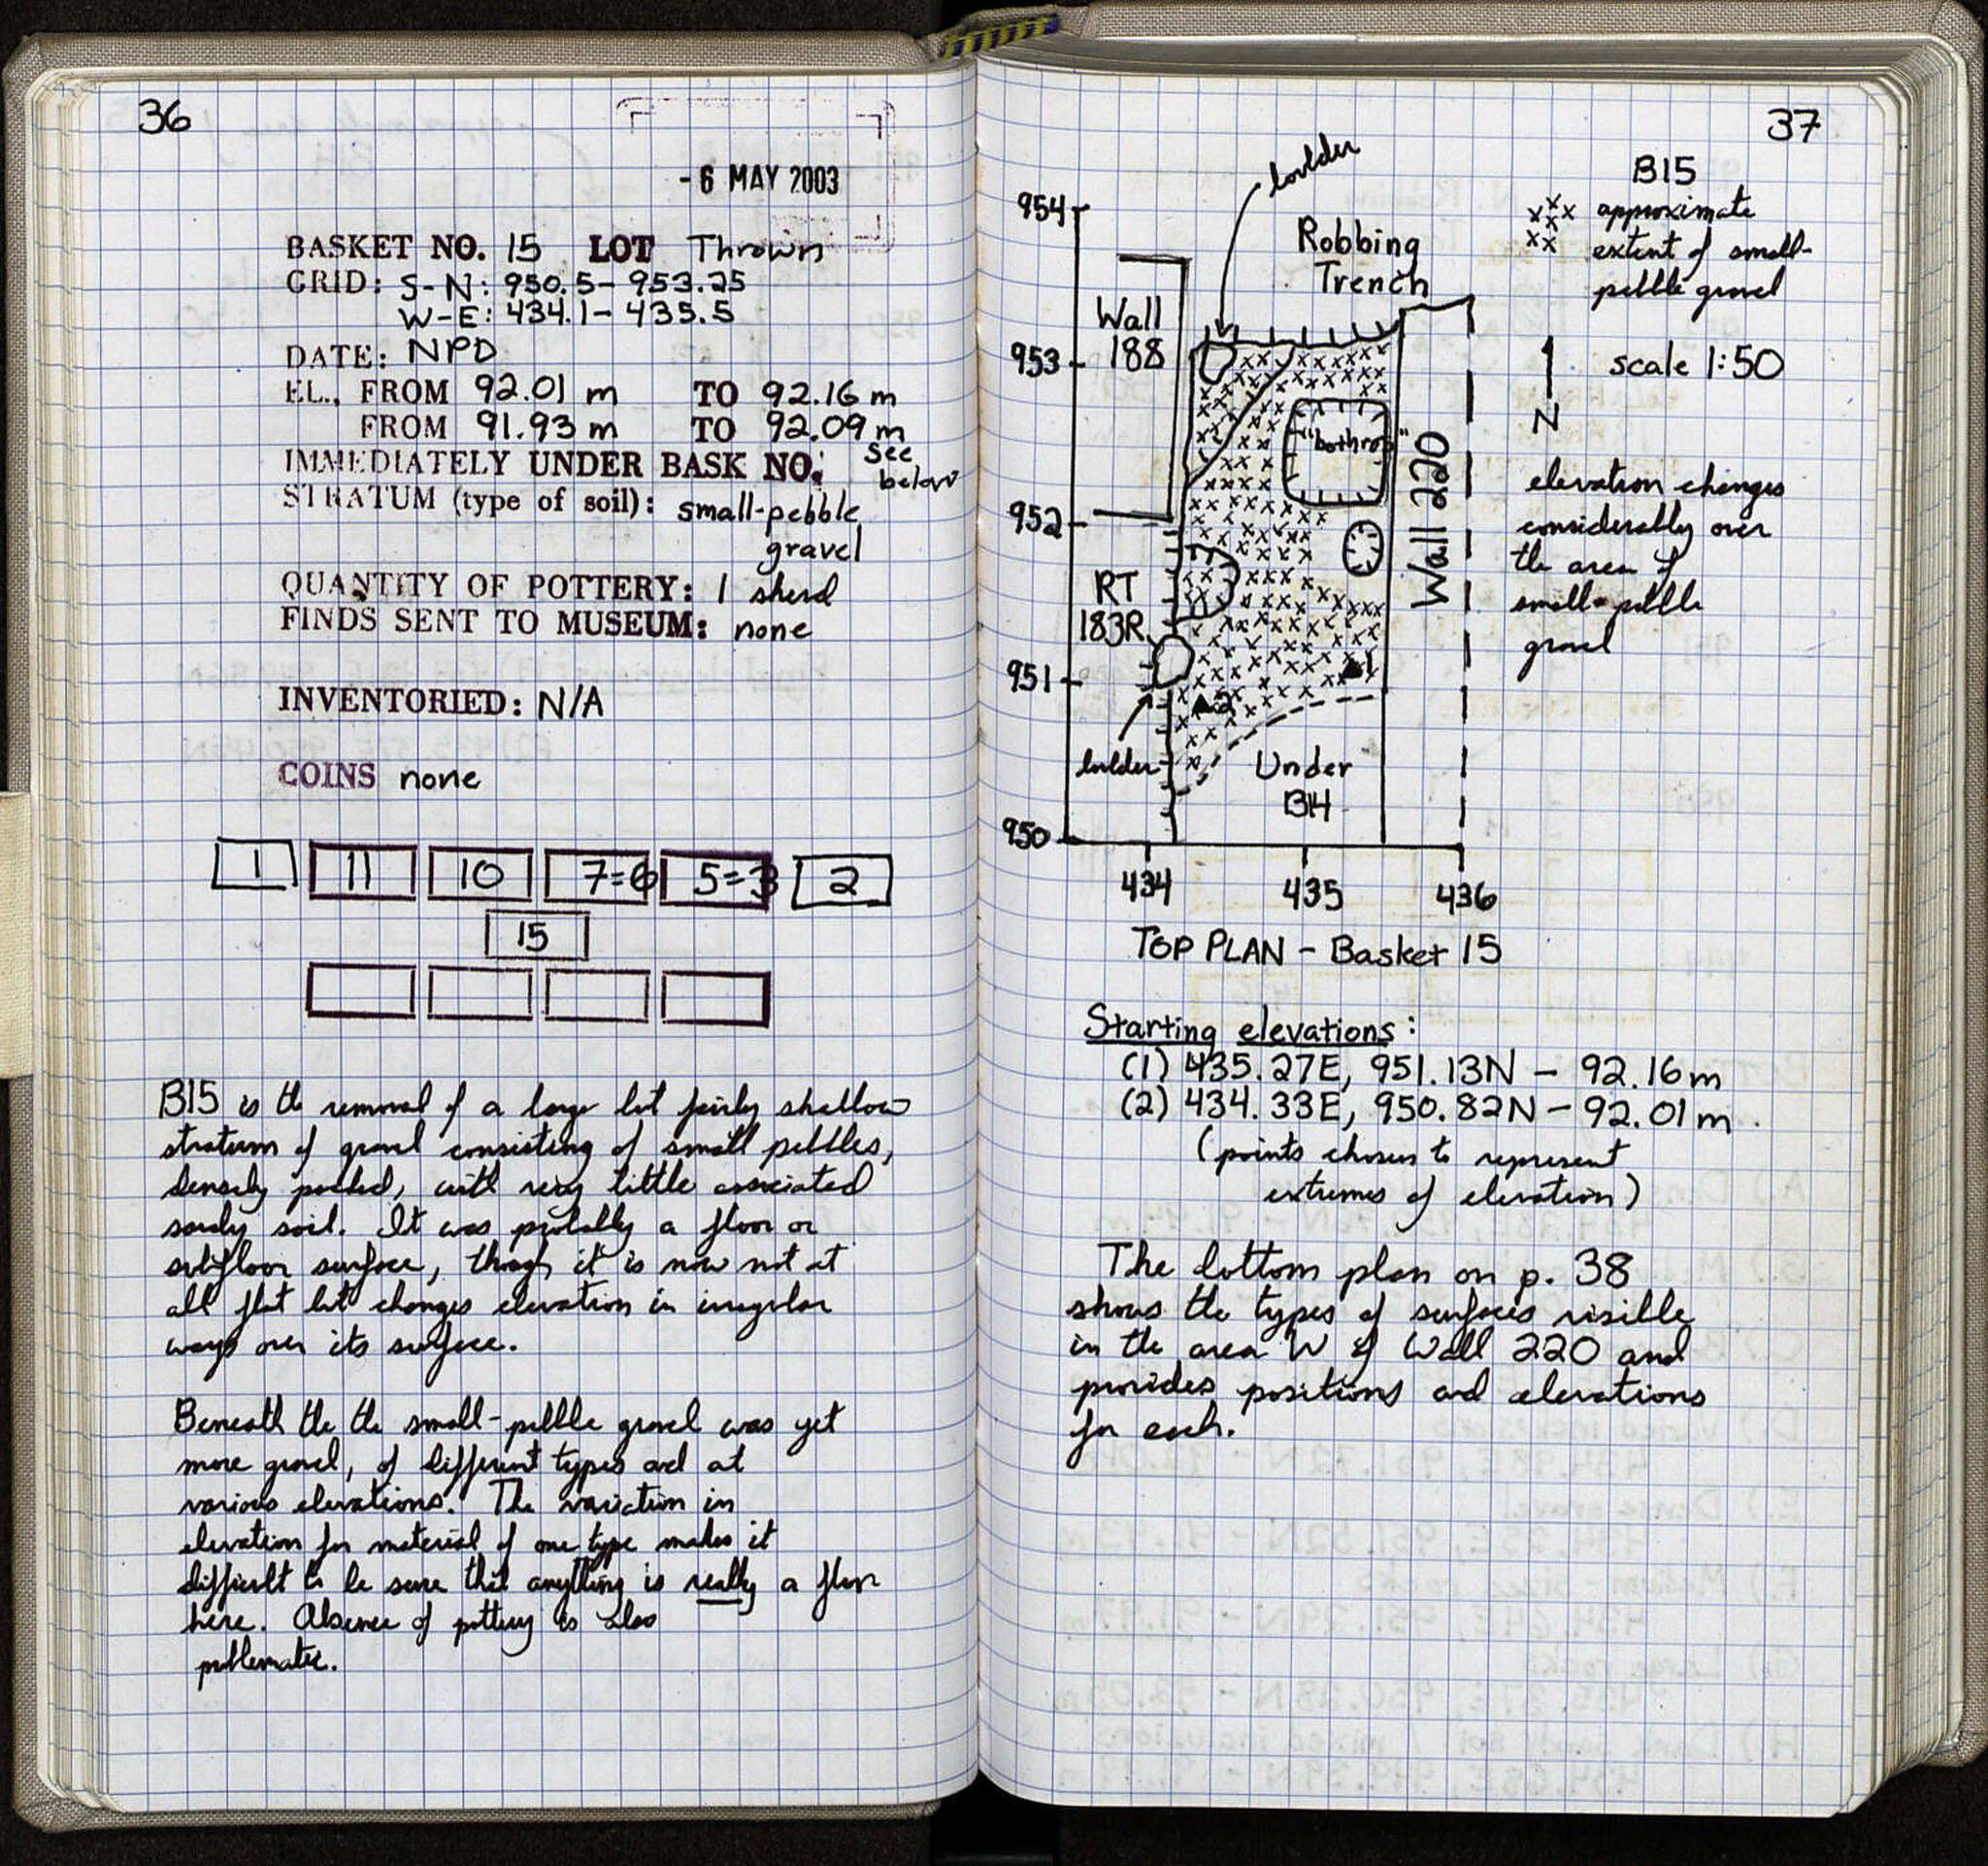 36
- 6 MAY 2003
BASKET NO. 15 LOT Thrown
GRID: S-N: 950.5-953.25
W-E: 434.1-435.5
DATE: NPD
EL., FROM 92.01 m TO 92.16 m
FROM 91.93 m TO 92.09 m
IMMEDIATELY UNDER BASK NO: see below
STRATUM (type of soil): small-pebble
gravel
QUANTITY OF POTTERY: 1 sherd
FINDS SENT TO MUSEUM: none
INVENTORIED: N/A
COINS none
1 11 10 7=6 5=3 2
15
B15 is the removal of a large but fairly shallow
stratum of gravel consisting of small pebbles,
densely packed, with very little associated
sandy soil. It was probably a floor or
subfloor surface, though it is now not at
all flat but changes elevation in irregular
ways over its surface.
Beneath the the small-pebble gravel was yet
more gravel, of different types and at
various elevations. The variation in
elevation for material of one type makes it
difficult to be sure that anything is really a floor
here. Absence of pottery is also
problematic.
37
boulder
954
Robbing
Trench
B15
xxx approximate
extent of small-
pebble gravel
Wall
188
953
scale 1:50
N
"bothros"
Wall 220
elevation changes
considerably over
the area of
small-pebble
gravel
952
RT
183R
951
1
2
boulder
Under
B14
950
434 435 436
TOP PLAN - Basket 15
Starting elevations:
(1) 435.27E, 951.13N - 92.16m
(2) 434.33E, 950.82N - 92.01m.
(points chosen to represent
extremes of elevation)
The bottom plan on p. 38
shows the types of surfaces visible
in the area W of Wall 220 and
provides positions and elevations
for each.